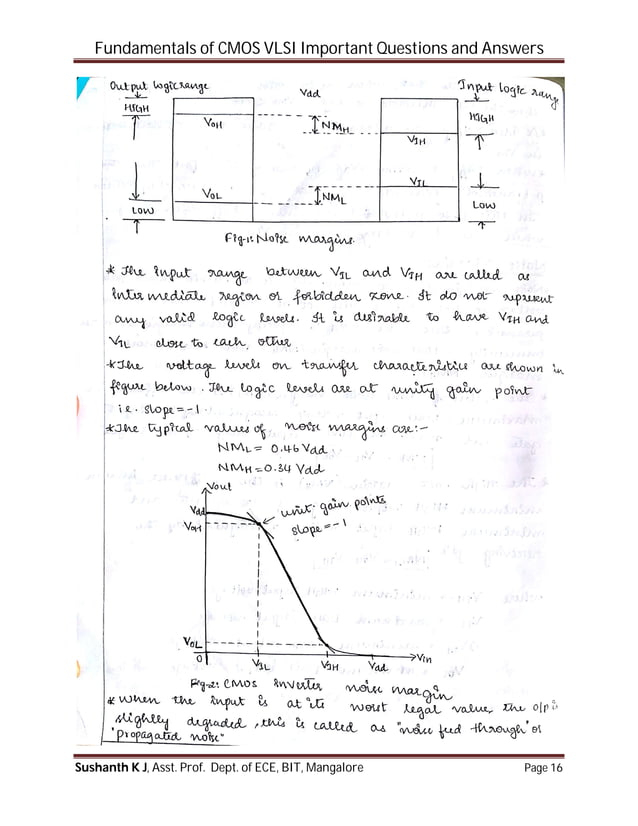 Fundamentals of CMOS VLSI Important Questions and Answers
Output logic range
Vdd
Input logic range
HIGH
VOH
NMH
VIH
HIGH
VOL
NML
VIL
LOW
LOW
Fig-1: Noise margins.
* The input range between VIL and VIH are called as
inter mediate region or forbidden zone. It do not represent
any valid logic levels. It is desirable to have VIH and
VIL close to each other.
* The voltage levels on transfer characteristics are shown in
figure below. The logic levels are at unity gain point
i.e. slope = -1.
* The typical values of noise margins are:-
NML = 0.46 Vdd
NMH = 0.34 Vdd
Vout
Vdd
VOH
unit gain points
slope = -1
VOL
0
VIL
VIH
Vdd
Vin
Fig-2: CMOS inverter noise margin
* When the input is at its worst legal value, the o/p is
slightly degraded, this is called as "noise feed through" or
"propagated noise"
Sushanth K J, Asst. Prof. Dept. of ECE, BIT, Mangalore
Page 16